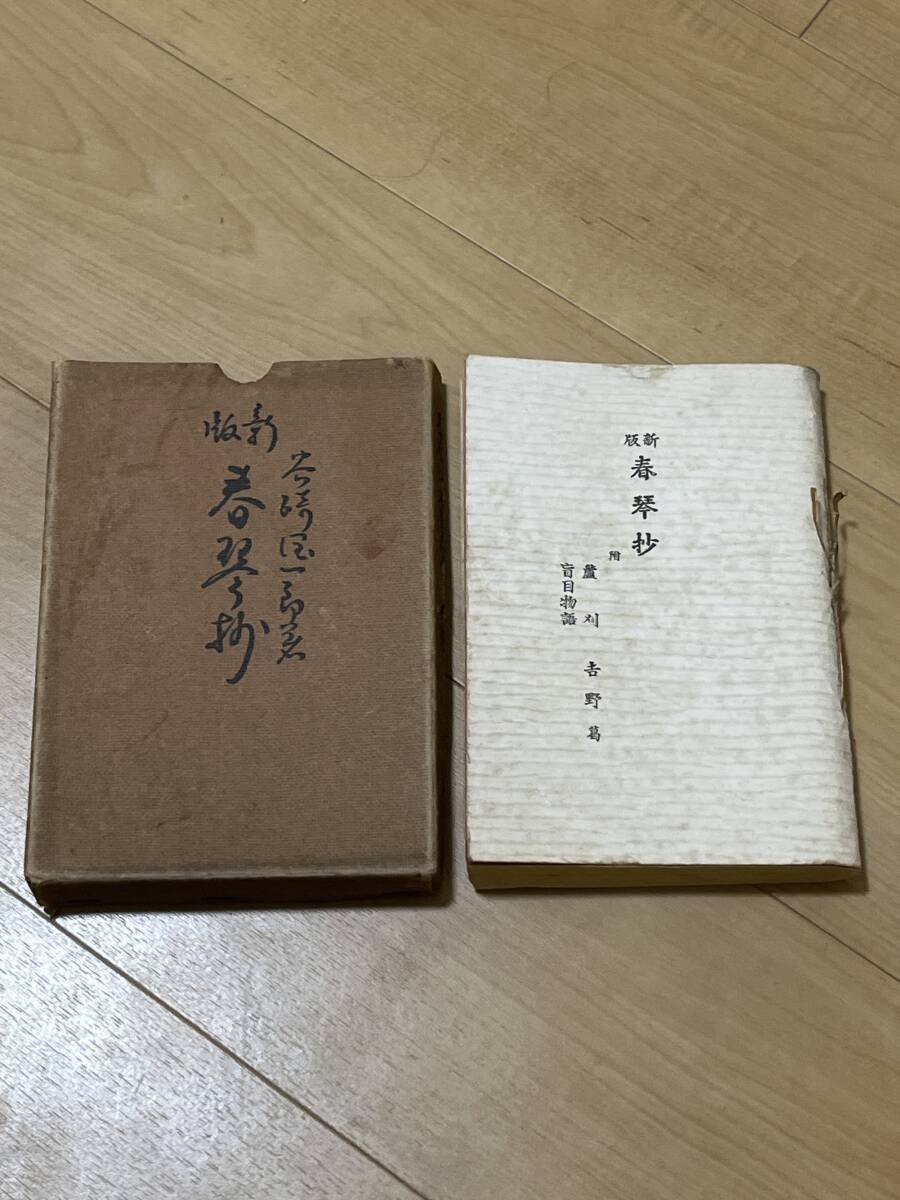 新版
春琴抄
谷崎潤一郎著
新版
春琴抄
附
蘆刈 吉野葛
盲目物語